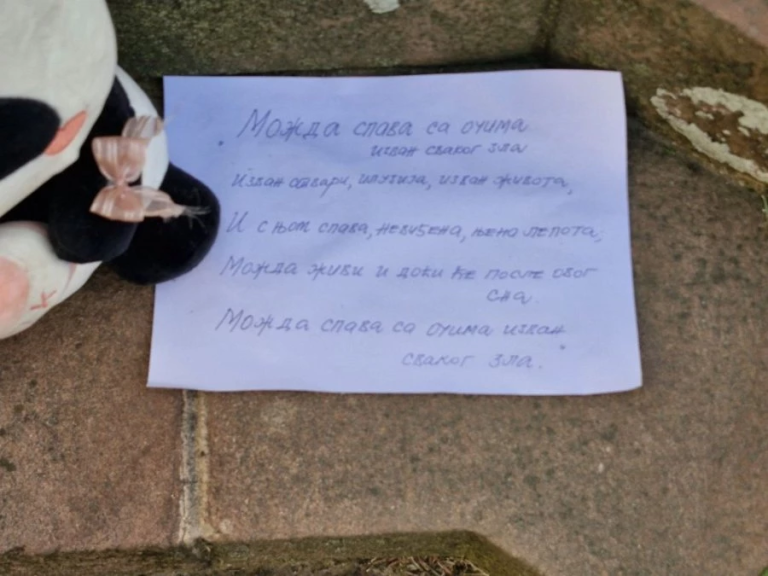 Можда спава са очима
изван сваког зла
Изван ствари, илузија, изван живота,
И с њом спава, невиђена, њена лепота;
Можда живи и доћи ће после овог
сна.
Можда спава са очима изван
сваког зла.